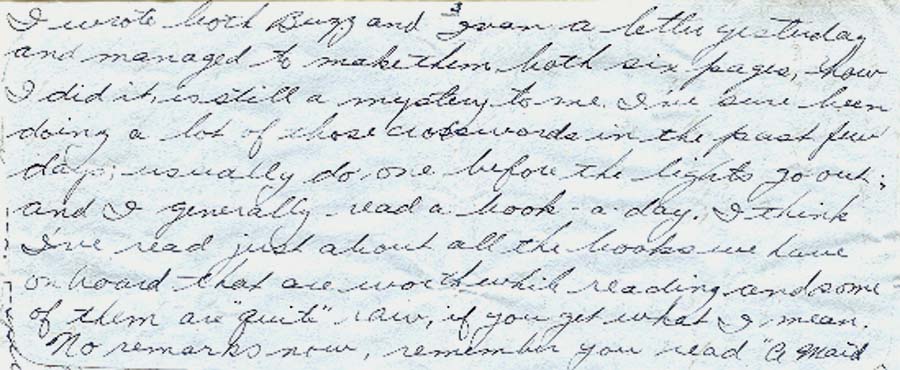 I wrote both Buzz and Ivan a letter yesterday
and managed to make them both six pages, how
I did it, is still a mystery to me. I've sure been
doing a lot of those crosswords in the past few
days; usually do one before the lights go out;
and I generally read a book - a - day. I think
I've read just about all the books we have
on board that are worthwhile reading and some
of them are "quite" raw, if you get what I mean.
No remarks now, remember you read "A Maid